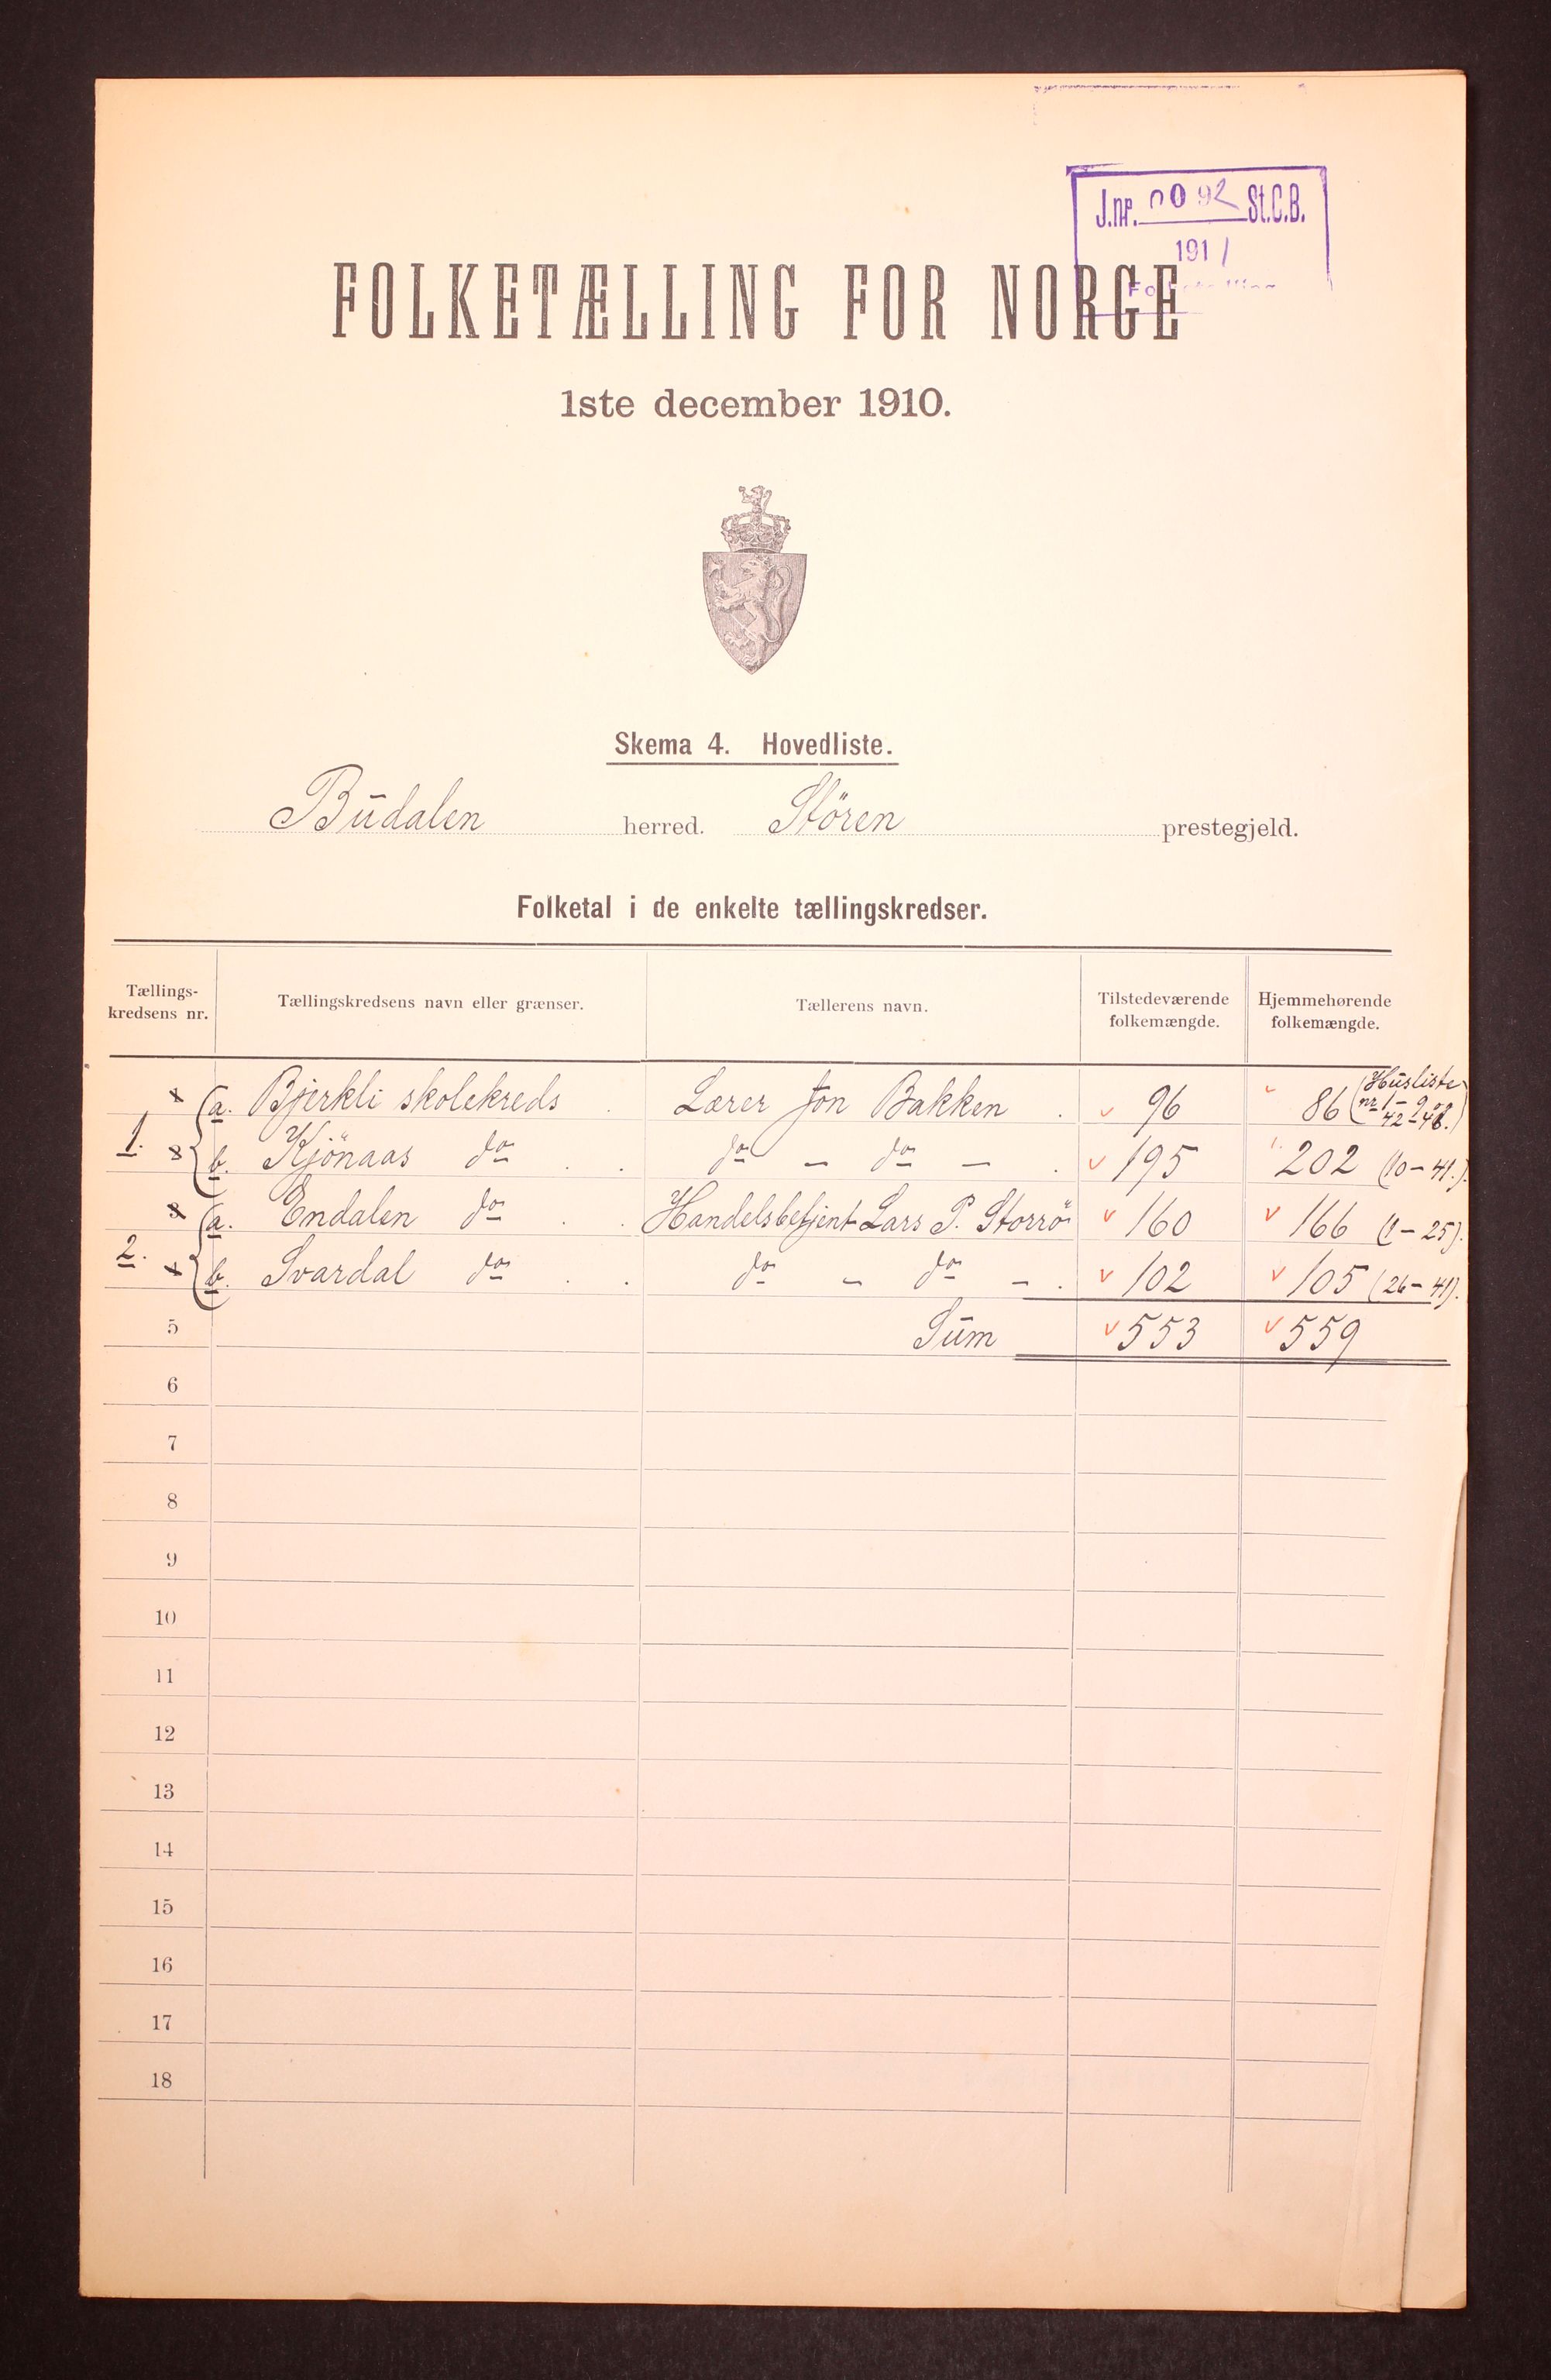 J.nr. 0092 St.C.B.
1911
FOLKETÆLLING FOR NORGE
1ste december 1910.
Skema 4. Hovedliste.
Budalen herred. Stören prestegjeld.
Folketal i de enkelte tællingskredser.
Tællings-
kredsens nr. Tællingskredsens navn eller grænser. Tællerens navn. Tilstedeværende
folkemængde. Hjemmehørende
folkemængde.
1. a. Bjerkli skolekreds Lærer Jon Bakken 96 86 (Husliste nr 1-9 og 42-48.)
b. Kjönaas do do - do - 195 202 (10-41.)
2. a. Endalen do Handelsbetjent Lars P. Storrö 160 166 (1-25).
b. Svardal do do - do - 102 105 (26-41).
5 Sum 553 559
6
7
8
9
10
11
12
13
14
15
16
17
18